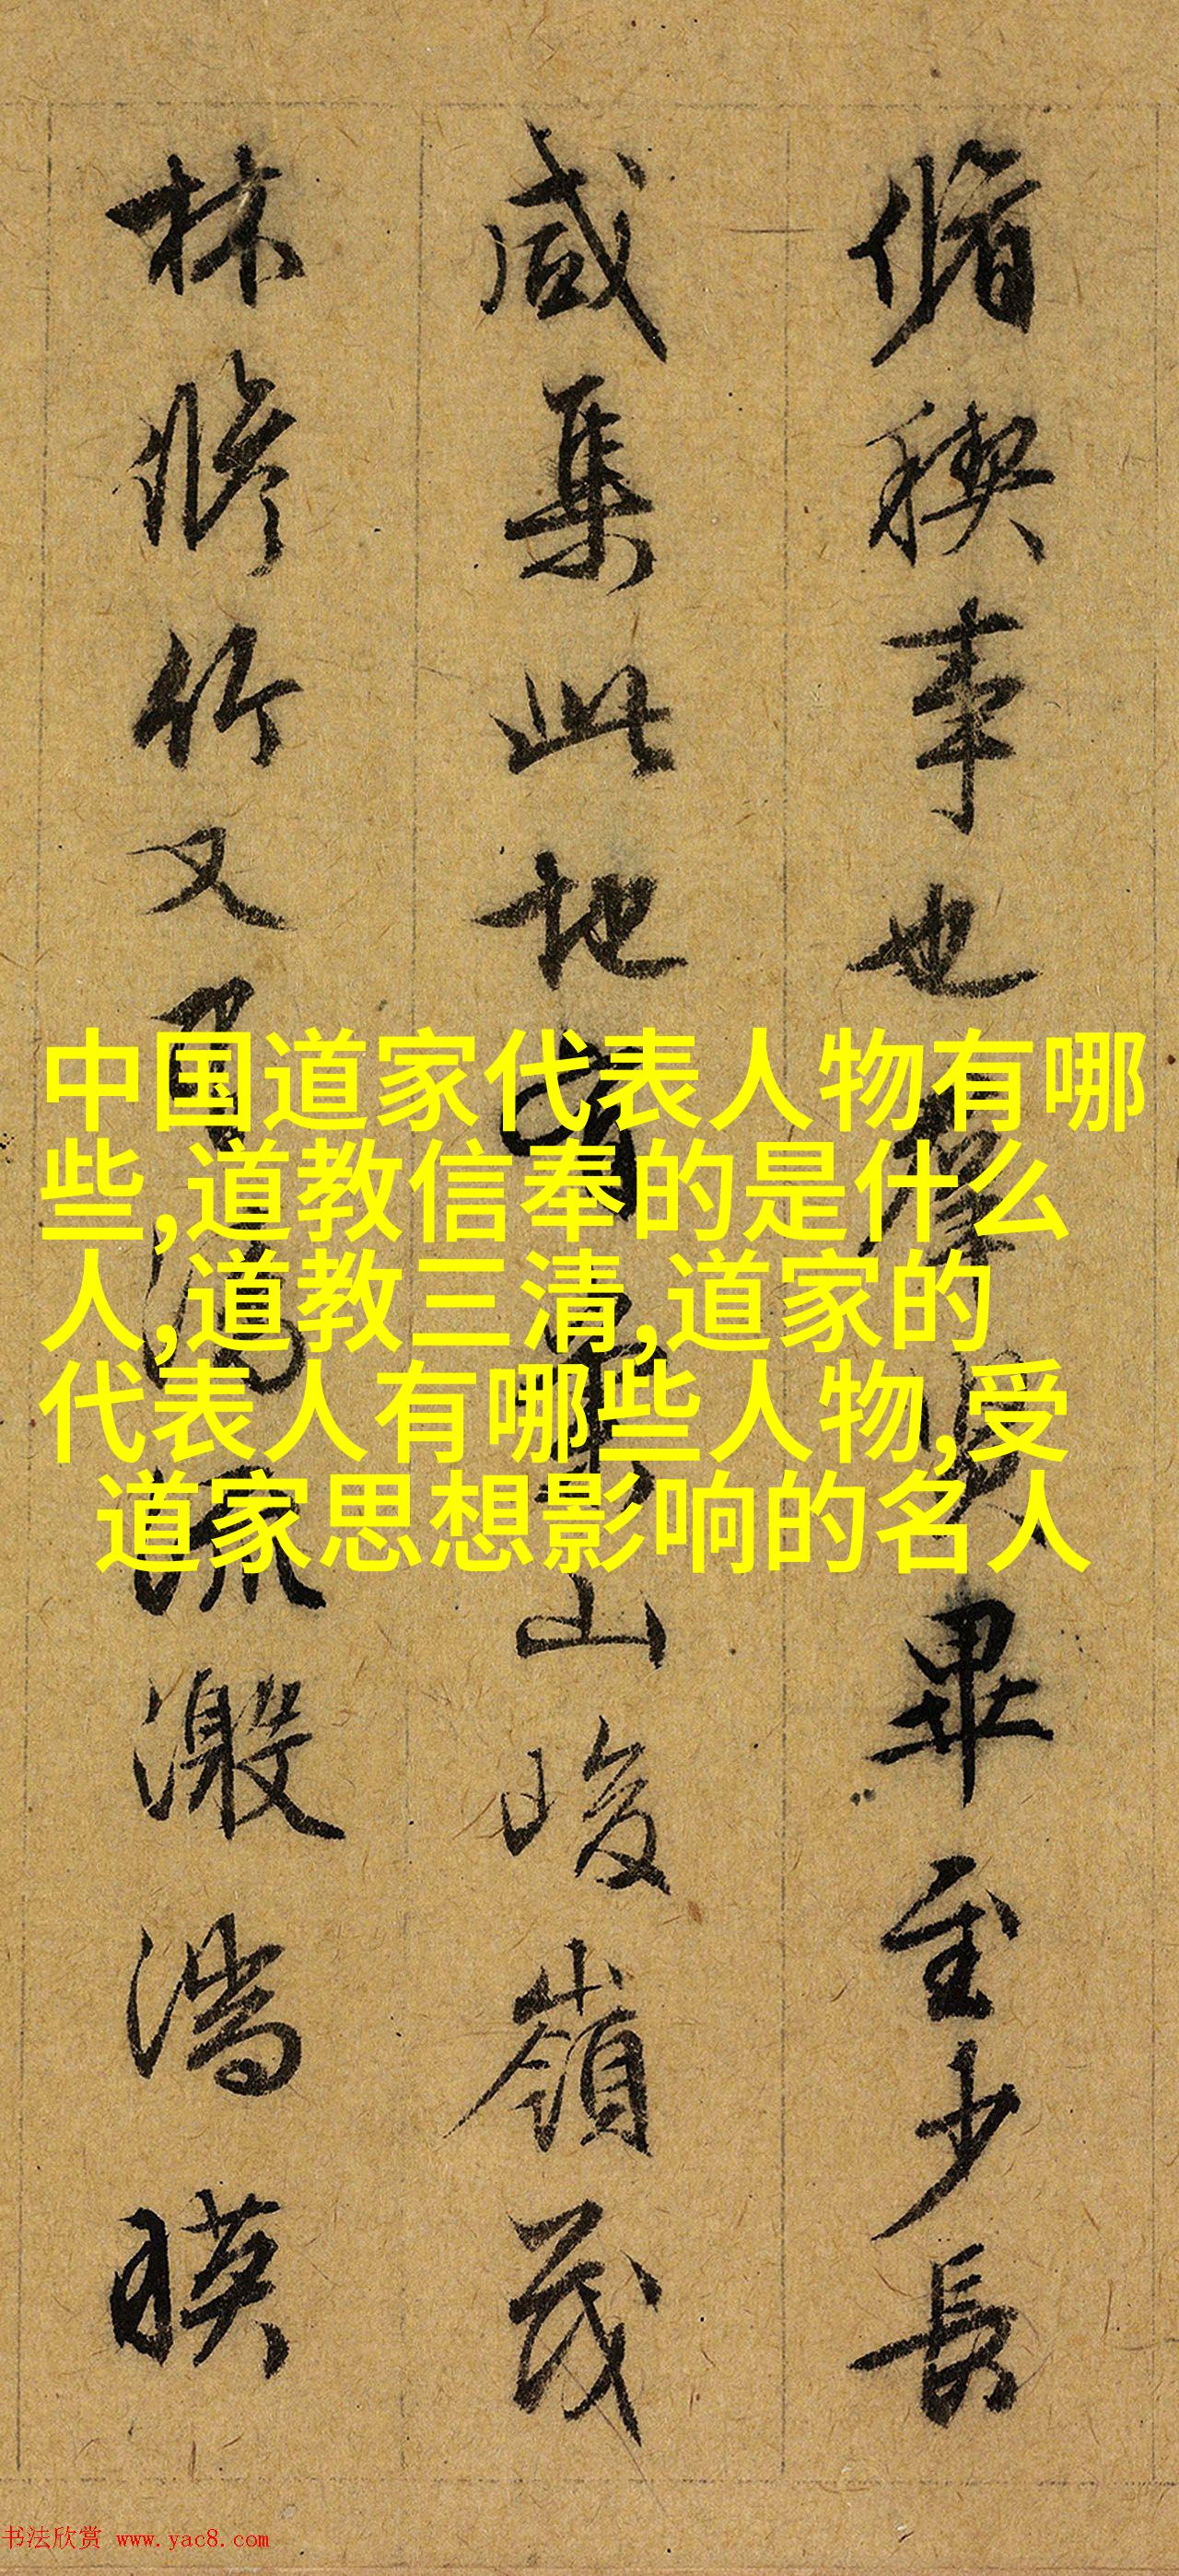 脩稧事也群賢畢至少長
咸集此地有崇山峻嶺茂
林脩竹又有流激湍暎
中国道家代表人物有哪
些,道教信奉的是什么
人,道教三清,道家的
代表人有哪些人物,受
道家思想影响的名人
书法欣赏 www.yac8.com